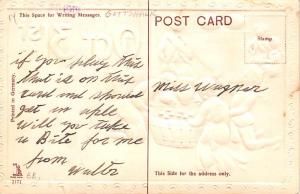 This Space for Writing Messages.
POST CARD
Stamp
if you play this
that is on this
card and should
get an aple
will you take
a Bite for me
from
Walter
Miss Wagner
Printed in Germany.
This Side for the address only.
2171.